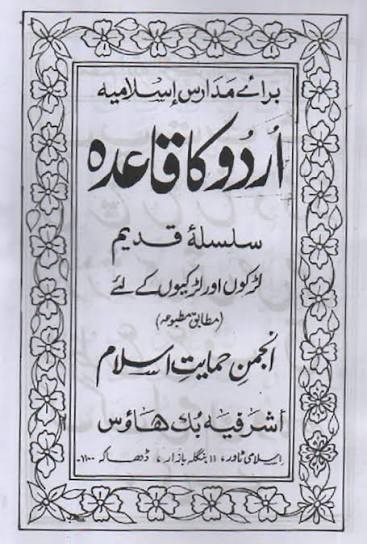 برائے مدارس اسلامیہ
اُردُو کا قاعدہ
سلسلۂ قدیم
لڑکوں اور لڑکیوں کے لئے
(مطابق مطبوعہ)
انجمنِ حمایتِ اسلام
اشرفیہ بُک ھاؤس
اسلامی ٹاور، ۱۱ بنگلہ بازار، ڈھاکہ ۱۱۰۰۔